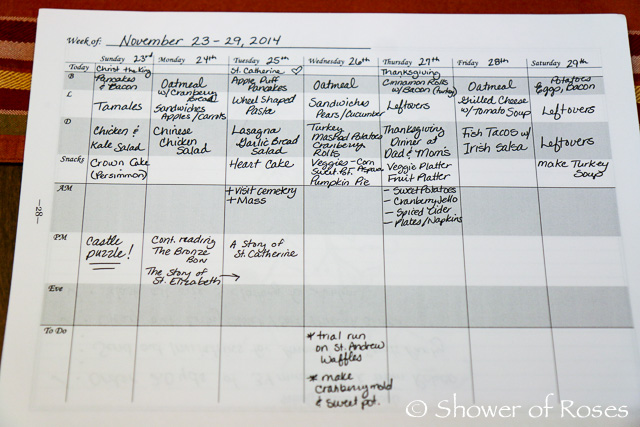 Week of: November 23 - 29, 2014
Sunday 23rd Monday 24th Tuesday 25th Wednesday 26th Thursday 27th Friday 28th Saturday 29th
Today Christ the King St. Catherine ♡ Thanksgiving
B
Pancakes
& Bacon
Oatmeal
w/ Cranberry
Bread
Apple Puff
Pancakes
Oatmeal
Cinnamon Rolls
w/ Bacon
Oatmeal
Potatoes
Eggs, Bacon
L
Tamales
Sandwiches
Apples/Carrots
Wheel Shaped
Pasta
Sandwiches
Pears/Cucumber
Leftovers
Grilled Cheese
w/ Tomato Soup
Leftovers
D
Chicken &
Kale Salad
Chinese
Chicken
Salad
Lasagna
Garlic Bread
Salad
Turkey
Mashed Potatoes
Cranberry
Rolls
Thanksgiving
Dinner at
Dad & Mom's
Fish Tacos w/
Irish Salsa
Leftovers
Snacks
Crown Cake
(Persimmon)
Heart Cake
Veggies - Corn
Sweet Pot. Asparagus
Pumpkin Pie
Veggie Platter
Fruit Platter
make Turkey
Soup
AM
+ Visit cemetery
+ Mass
- Sweet Potatoes
- Cranberry Jello
- Spiced Cider
- Plates/Napkins
-28-
PM
Castle
Puzzle!
Cont. reading
The Bronze
Bow
The Story of
St. Elizabeth →
A Story of
St. Catherine
Eve
To Do
* trial run
on St. Andrew
Waffles
* make
cranberry mold
& sweet pot.
© Shower of Roses